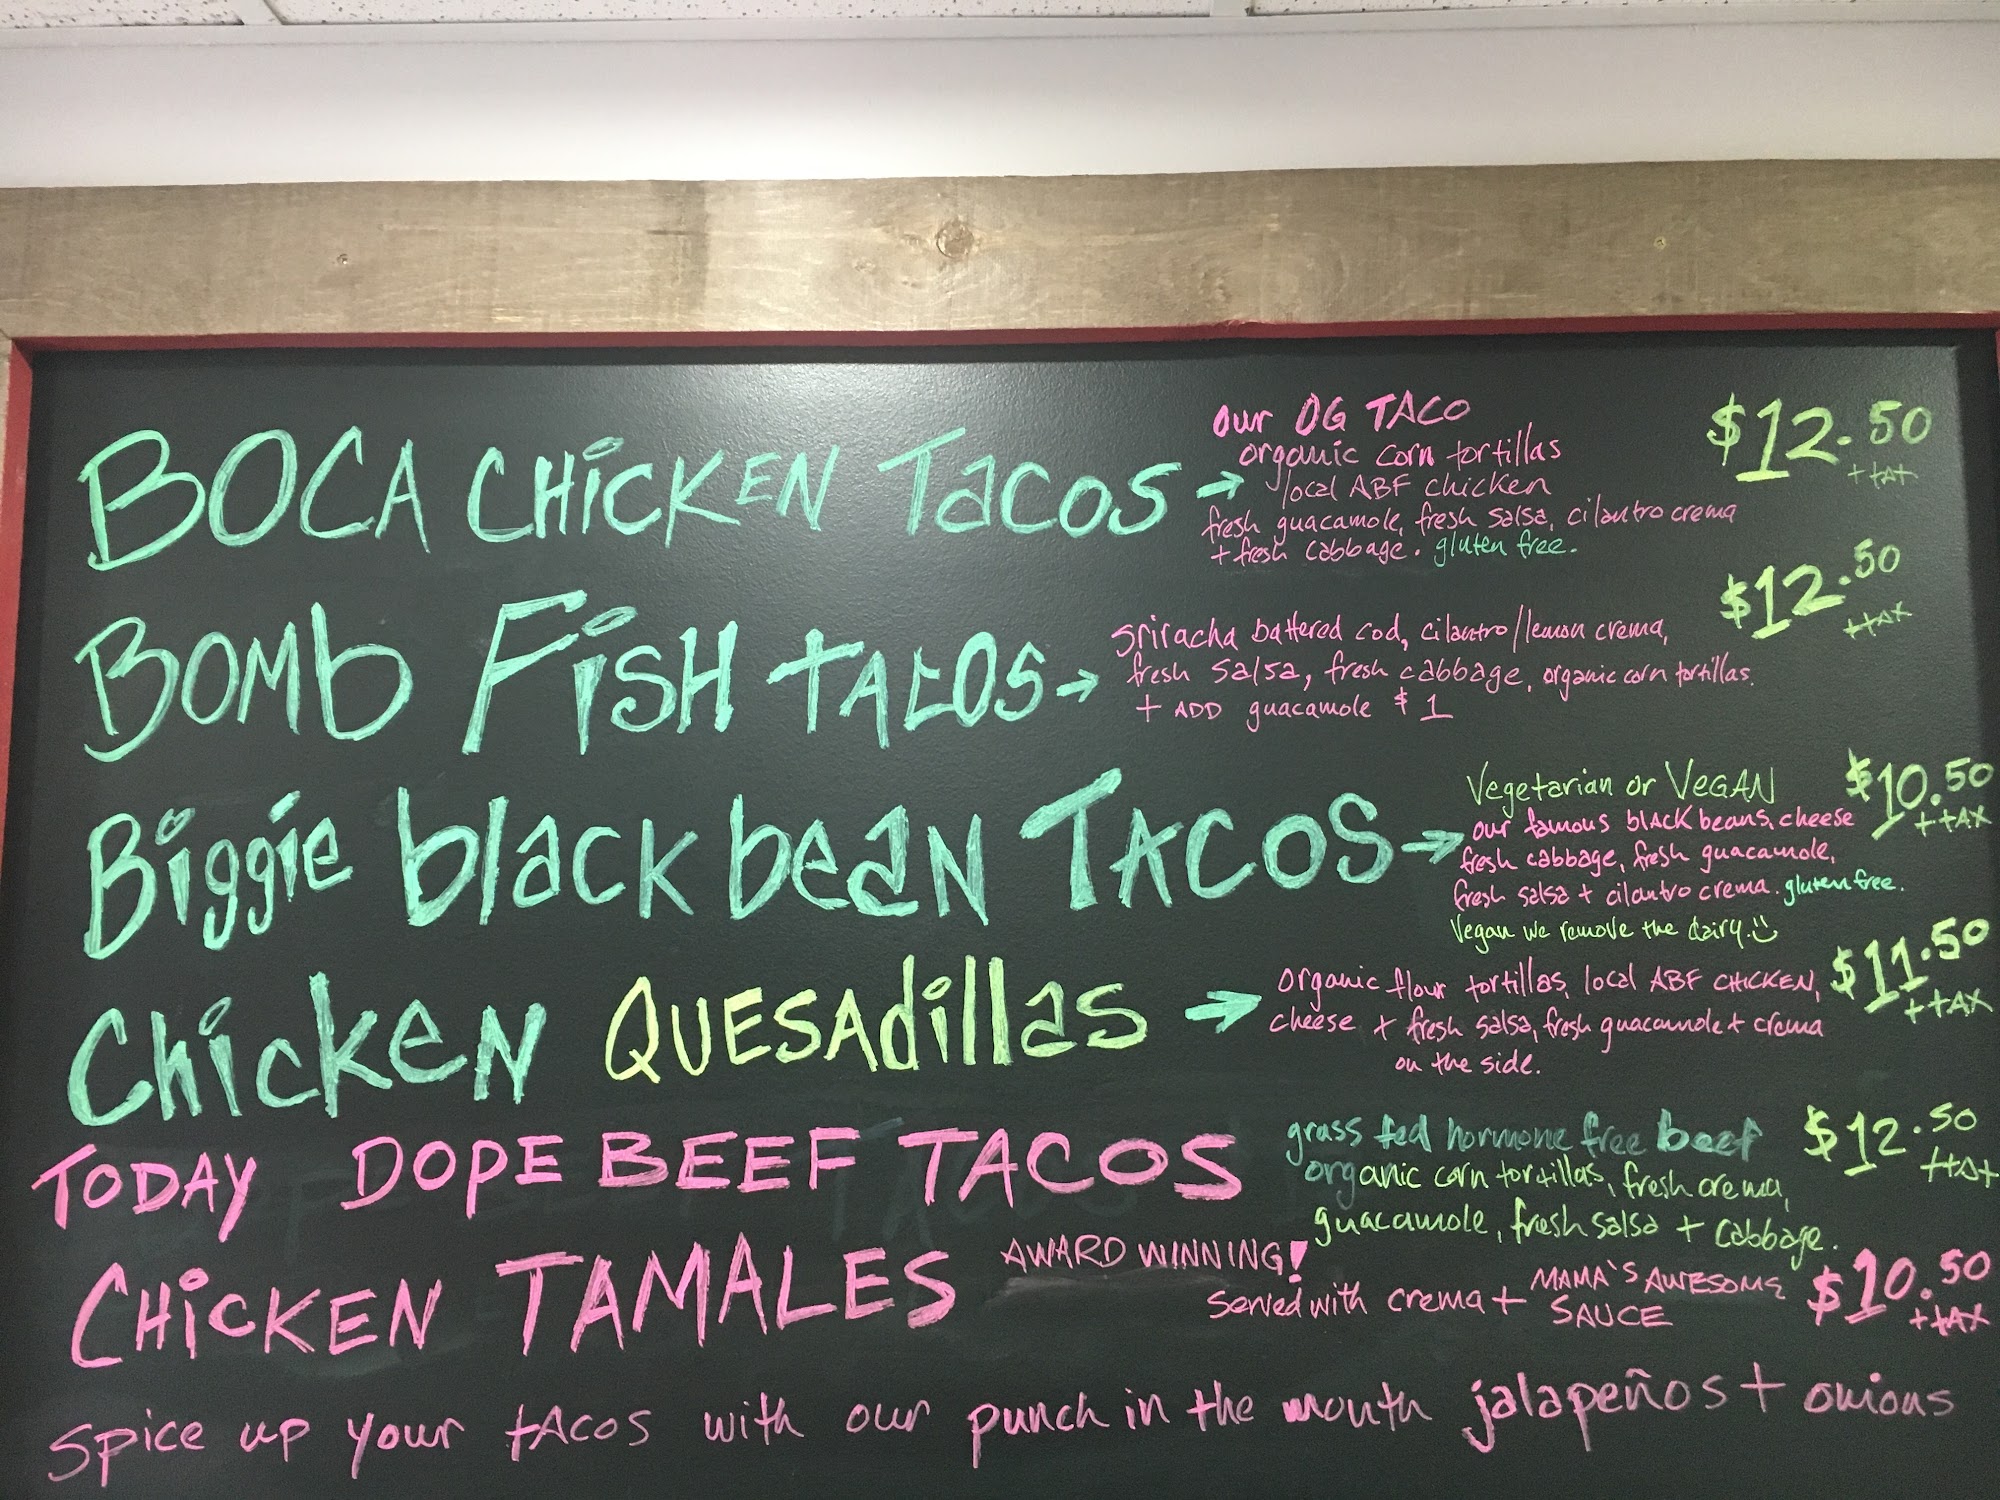 BOCA CHICKEN TACOS →
our OG TACO
organic corn tortillas
local ABF chicken
fresh guacamole, fresh salsa, cilantro crema
+ fresh cabbage. gluten free.
$12.50
+ tax
BOMB FISH TACOS →
Sriracha battered cod, cilantro/lemon crema,
fresh salsa, fresh cabbage, organic corn tortillas.
+ ADD guacamole $1
$12.50
+tax
Biggie black bean TACOS →
Vegetarian or VEGAN
our famous black beans, cheese
fresh cabbage, fresh guacamole,
fresh salsa + cilantro crema. gluten free.
Vegan we remove the dairy.
$10.50
+ tAX
Chicken QUESAdillas →
organic flour tortillas, local ABF CHICKEN,
cheese + fresh salsa, fresh guacamole + crema
on the side.
$11.50
+ tAX
TODAY DOPE BEEF TACOS
grass fed hormone free beef
organic corn tortillas, fresh crema,
guacamole, fresh salsa + cabbage.
$12.50
+tAx
CHICKEN TAMALES
AWARD WINNING!
Served with crema + MAMA'S AWESOME
SAUCE
$10.50
+ tAX
Spice up your tacos with our punch in the mouth jalapeños + onions